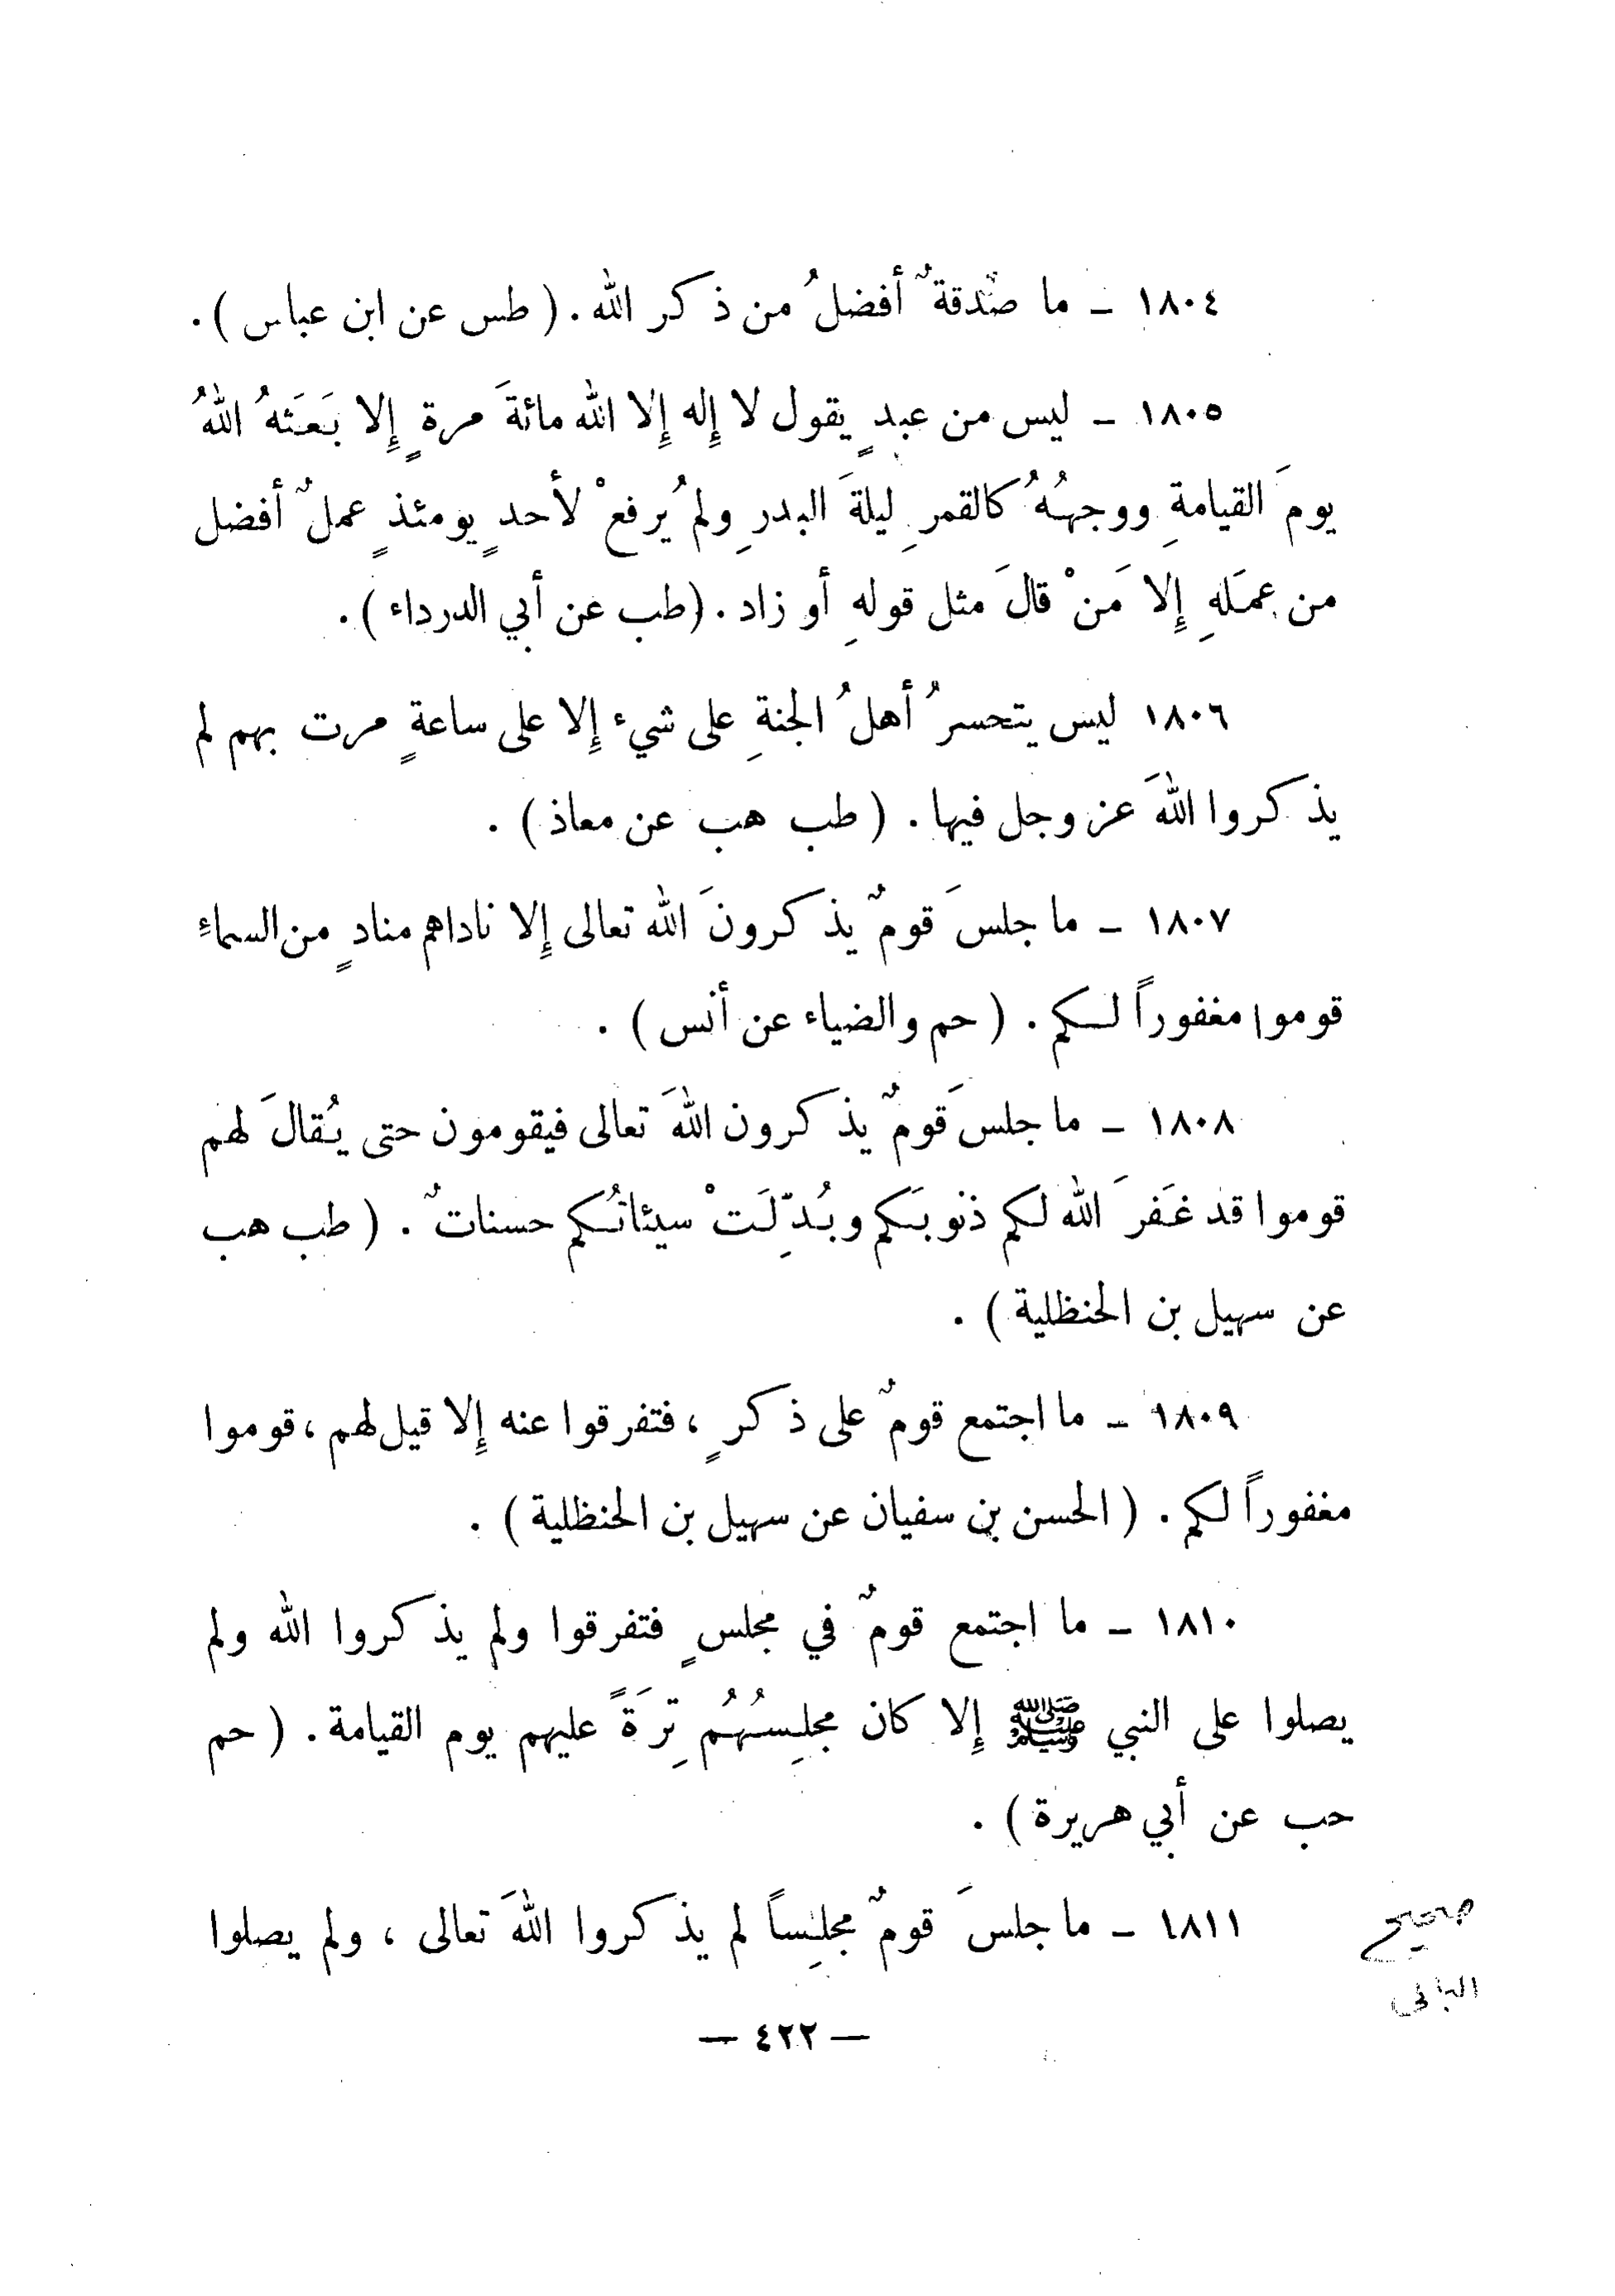 ١٨٠٤ ـ ما صدقةٌ أفضلُ من ذكر الله . ( طس عن ابن عباس ) .
١٨٠٥ ـ ليس من عبدٍ يقول لا إله إلا الله مائةَ مرةٍ إلا بَعَثهُ اللهُ
يومَ القيامةِ ووجههُ كالقمرِ ليلةَ البدرِ ولم يُرفعْ لأحدٍ يومئذٍ عملٌ أفضل
من عمَلهِ إلا مَنْ قالَ مثل قولهِ أو زاد . ( طب عن أبي الدرداء ) .
١٨٠٦ ليس يتحسرُ أهلُ الجنةِ على شيء إلا على ساعةٍ مرت بهم لم
يذكروا اللهَ عز وجل فيها . ( طب هب عن معاذ ) .
١٨٠٧ ـ ما جلسَ قومٌ يذكرونَ الله تعالى إلا ناداهم منادٍ من السماءِ
قوموا مغفوراً لكم . ( حم والضياء عن أنس ) .
١٨٠٨ ـ ما جلسَ قومٌ يذكرون اللهَ تعالى فيقومون حتى يُقالَ لهم
قوموا قد غَفرَ الله لكم ذنوبَكم وبُدِّلَتْ سيئاتُكم حسناتٌ . ( طب هب
عن سهيل بن الحنظلية ) .
١٨٠٩ ـ ما اجتمع قومٌ على ذكرٍ ، فتفرقوا عنه إلا قيل لهم ، قوموا
مغفوراً لكم . ( الحسن بن سفيان عن سهيل بن الحنظلية ) .
١٨١٠ ـ ما اجتمع قومٌ في مجلسٍ فتفرقوا ولم يذكروا الله ولم
يصلوا على النبي ﷺ إلا كان مجلِسُهُم تِرَةً عليهم يوم القيامة . ( حم
حب عن أبي هريرة ) .
١٨١١ ـ ما جلسَ قومٌ مجلِساً لم يذكروا اللهَ تعالى ، ولم يصلوا
صحيح
الباني
— ٤٢٢ —